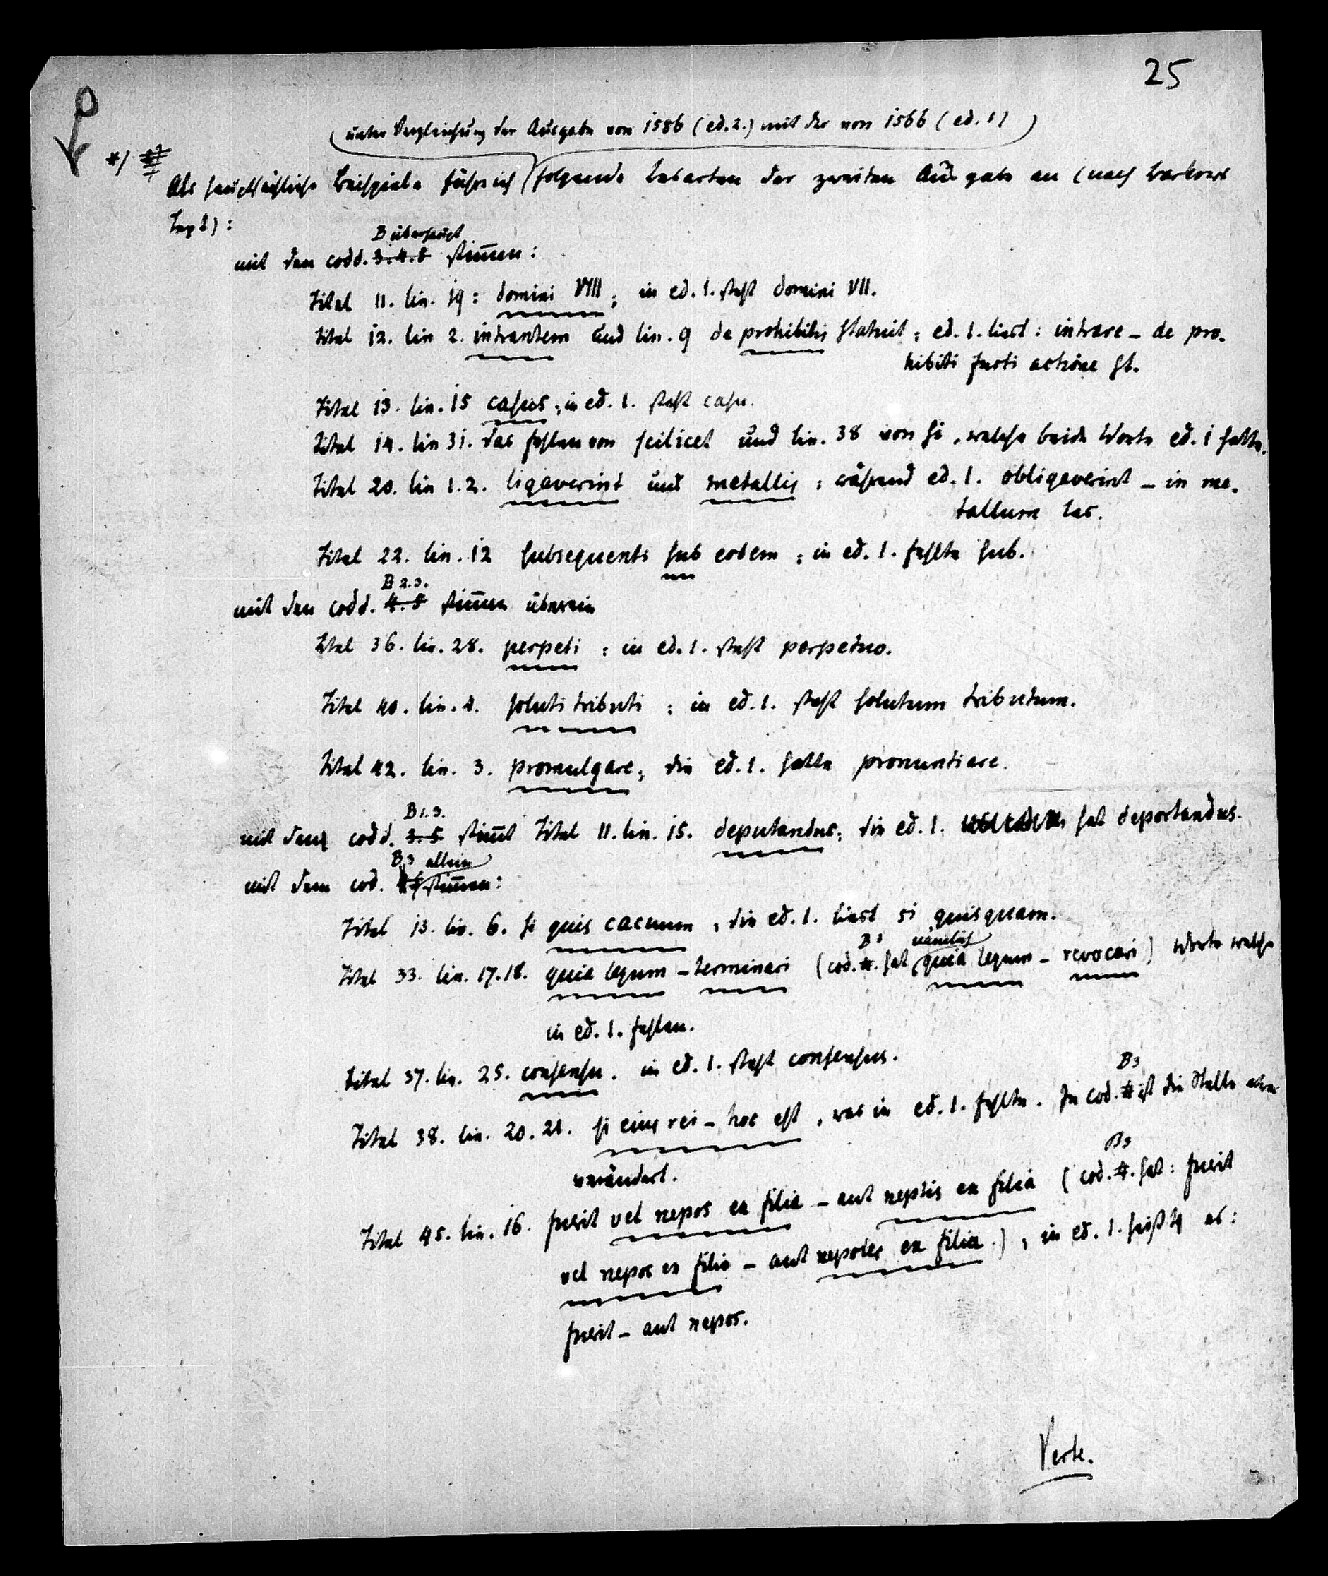 25
(unter Vergleichung der Ausgabe von 1586 (ed. 2.) mit der von 1566 (ed. 1))
*) Als hauptsächliche Beispiele führe ich folgende Lesarten der zweiten Ausgabe an (nach Barkows
Text):
B überhaupt
mit den codd. 3. 4. 5 stimmen:
Titel 11. lin. 19: domini VIII; in ed. 1. steht domini VII.
Titel 12. lin 2. intrantem und lin. 9 de prohibitis statuit; ed. 1. liest: intrare – de pro-
hibiti furti actione st.
Titel 13. lin. 15 casus; in ed. 1. steht casu.
Titel 14. lin 31. das Fehlen von scilicet und lin. 38 von si, welche beide Worte ed. 1 hatte.
Titel 20. lin 1. 2. ligaverint und metallis; während ed. 1. obligaverint – in me-
tallum las.
Titel 22. lin. 12 subsequenti sub eodem; in ed. 1. fehlte sub.
B 2. 3.
mit den codd. 4. 5 stimmen überein
Titel 36. lin. 28. perpeti; in ed. 1. steht perpetuo.
Titel 40. lin. 4. soluti tributi; in ed. 1. steht solutum tributum.
Titel 42. lin. 3. promulgare; die ed. 1. hatte pronuntiare.
B 1. 3.
mit den codd. 3. 5 stimmt Titel 11. lin. 15. deputandus; die ed. 1. hat deportandus.
B 3 allein
mit dem cod. stimmen:
Titel 13. lin. 6. si quis cacumen, die ed. 1. liest si quisquam.
B 3 nämlich
Titel 33. lin. 17. 18. quia legum – terminari (cod. 4. hat quia legum – revocari) Worte welche
in ed. 1. fehlen.
Titel 37. lin. 25. consensu. in ed. 1. steht consensus.
B 3
Titel 38. lin. 20. 21. si eius rei – hoc est, was in ed. 1. fehlte. In cod. 4 ist die Stelle aber
verändert.
B 3
Titel 45. lin. 16. fuerit vel nepos ex filia – aut neptis ex filia (cod. 4. hat: fuerit
vel nepos ex filio – aut nepotes ex filia.), in ed. 1. heißt es:
fuerit – aut nepos.
Verte.